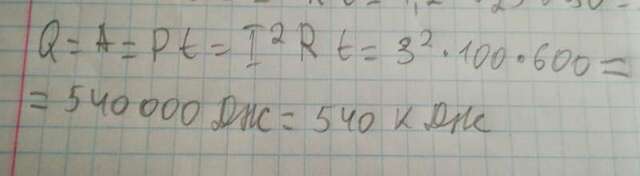 Q = A = Pt = I² R t = 3² · 100 · 600 =
= 540 000 Дж = 540 кДж